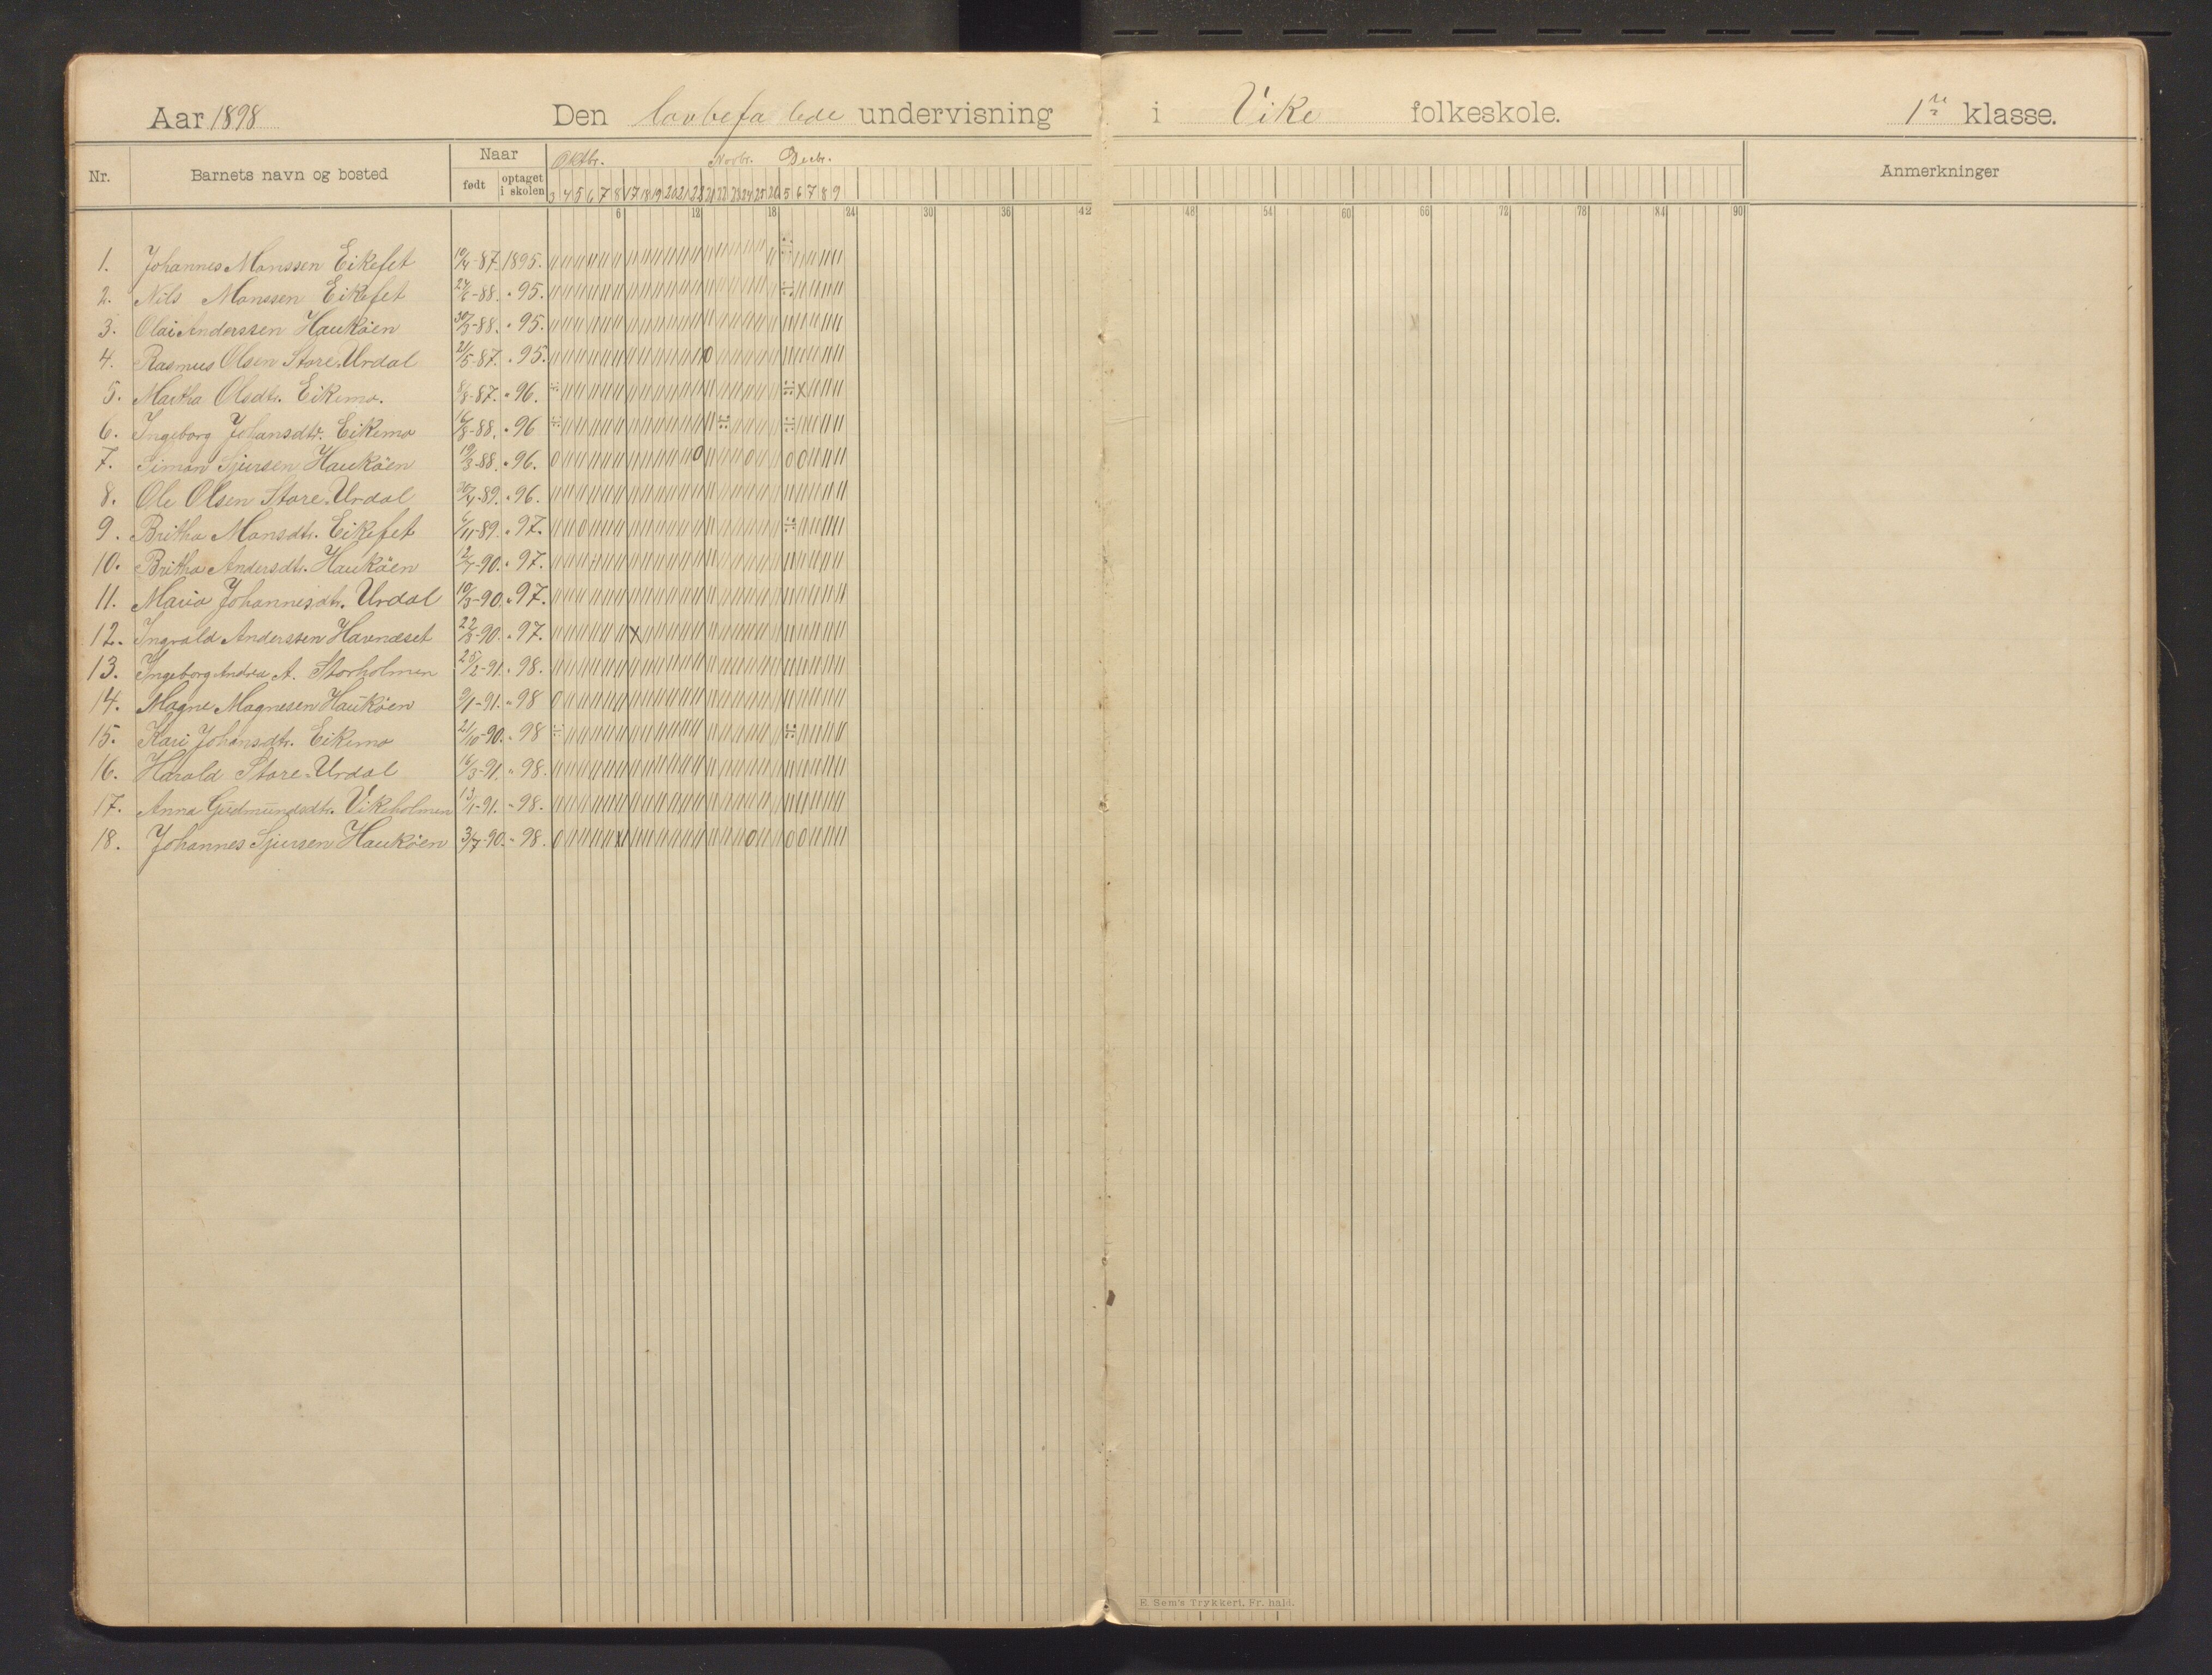 Aar 1898 Den lovbefalede undervisning i Vike folkeskole. 1ste klasse.
Nr. Barnets navn og bosted Naar født optaget i skolen Oktbr. Novbr. Decbr. Anmerkninger
3 4 5 6 7 8 17 18 19 20 21 22 21 22 23 24 25 26 5 6 7 8 9
6 12 18 24 30 36 42 48 54 60 66 72 78 84 90
1. Johannes Monssen Eikefet 19/4-87. 1895.
2. Nils Monssen Eikefet 24/6-88. " 95.
3. Olai Anderssen Haukøen 30/3-88. " 95.
4. Rasmus Olsen Store-Urdal 21/5-87. " 95.
5. Martha Olsdtr. Eikemo. 8/8-87. " 96.
6. Ingeborg Johansdtr. Eikemo 16/8-88. " 96
7. Simon Sjursen Haukøen 19/3-88. " 96.
8. Ole Olsen Store-Urdal 30/4-89. " 96.
9. Britha Monsdtr. Eikefet 6/11-89. " 97.
10. Britha Andersdtr. Haukøen 12/7-90. " 97.
11. Maria Johannesdtr. Urdal 19/3-90. " 97.
12. Ingvald Anderssen Havnæset 22/3-90. " 97.
13. Ingeborg Andrea A. Storholmen 25/2-91. " 98.
14. Magne Magnesen Haukøen 9/1-91. " 98
15. Kari Johansdtr. Eikemo 21/10-90. " 98
16. Harald Store-Urdal 16/3-91. " 98.
17. Anna Gudmundsdtr. Vikeholmen 13/1-91. " 98.
18. Johannes Sjursen Haukøen 3/7-90. " 98.
E. Sem's Trykkeri, Fr. hald.